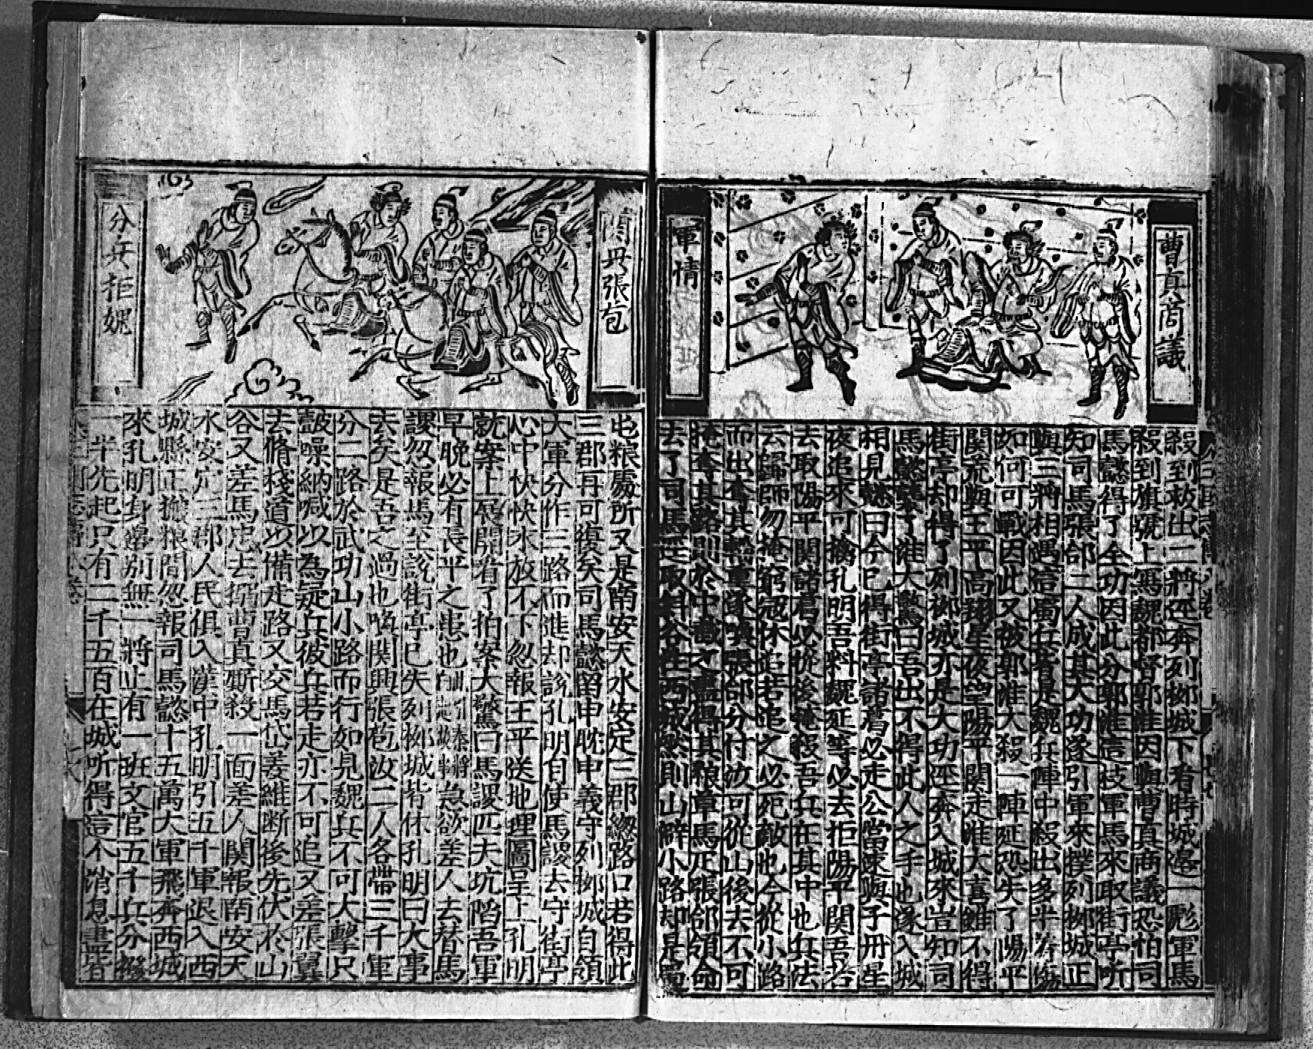 曹真商議
軍情
殺到救出二將逕奔列柳城下看時城邊一彪軍馬
殺到旗號上寫魏都督郭淮因與曹真商議恐怕司
馬懿得了全功因此分郭淮這枝軍馬來取街亭听
知司馬張郃二人成其大功遂引軍來襲列柳城正
與三將相遇這蜀兵看是魏兵陣中殺出多半筹傷
如何可戰因此又被郭淮大殺一陣延恐失了陽平
関荒與王平高翔星夜望陽平関走淮大喜雖不得
街亭却得了列柳城亦是大功逕奔入城來豈知司
馬懿襲了淮大驚曰吾出不得此人之手也遂入城
相見懿曰今已得街亭諸葛必走公當速與子丹星
夜追來可擒孔明吾料魏延等必去拒陽平関吾若
去取陽平関諸葛必從後掩殺吾兵在其中也兵法
云歸師勿掩窮寇休追若追之必死敵也今從小路
而出奪其輜重遂喚張郃分付汝可從山後去不可
掩奪其路則於中截之盡得其粮草馬疋張郃領命
去了司馬逕取斜谷在西城縣則山僻小路却是蜀
関興張苞
分兵拒魏
屯粮處所又是南安天水安定三郡總路口若得此
三郡再可復矣司馬懿留申耽申義守列柳城自領
大軍分作三路而進却該孔明自使馬謖去守街亭
心中怏怏水放不下忽報王平送地理圖呈上孔明
就案上展開看了拍案大驚曰馬謖匹夫坑陷吾軍
早晚必有長平之患也急欲差人去替馬
謖忽報馬至說街亭已失列柳城皆休孔明曰大事
去矣是吾之過也喚関興張苞汝二人各帶三千軍
分二路於武功山小路而行如見魏兵不可大擊只
鼓噪納喊以為疑兵彼兵若走亦不可追又差張翼
去脩棧道以備走路又交馬岱姜維断後先伏於山
谷又差馬忠去搦曹真廝殺一面差人関報南安天
水安定三郡人民俱入漢中孔明引五千軍退入西
城縣正搬粮間忽報司馬懿十五萬大軍飛奔西城
來孔明身邊別無一將止有一班文官五千兵分撥
一半先起只有二千五百在城听得這个消息盡皆